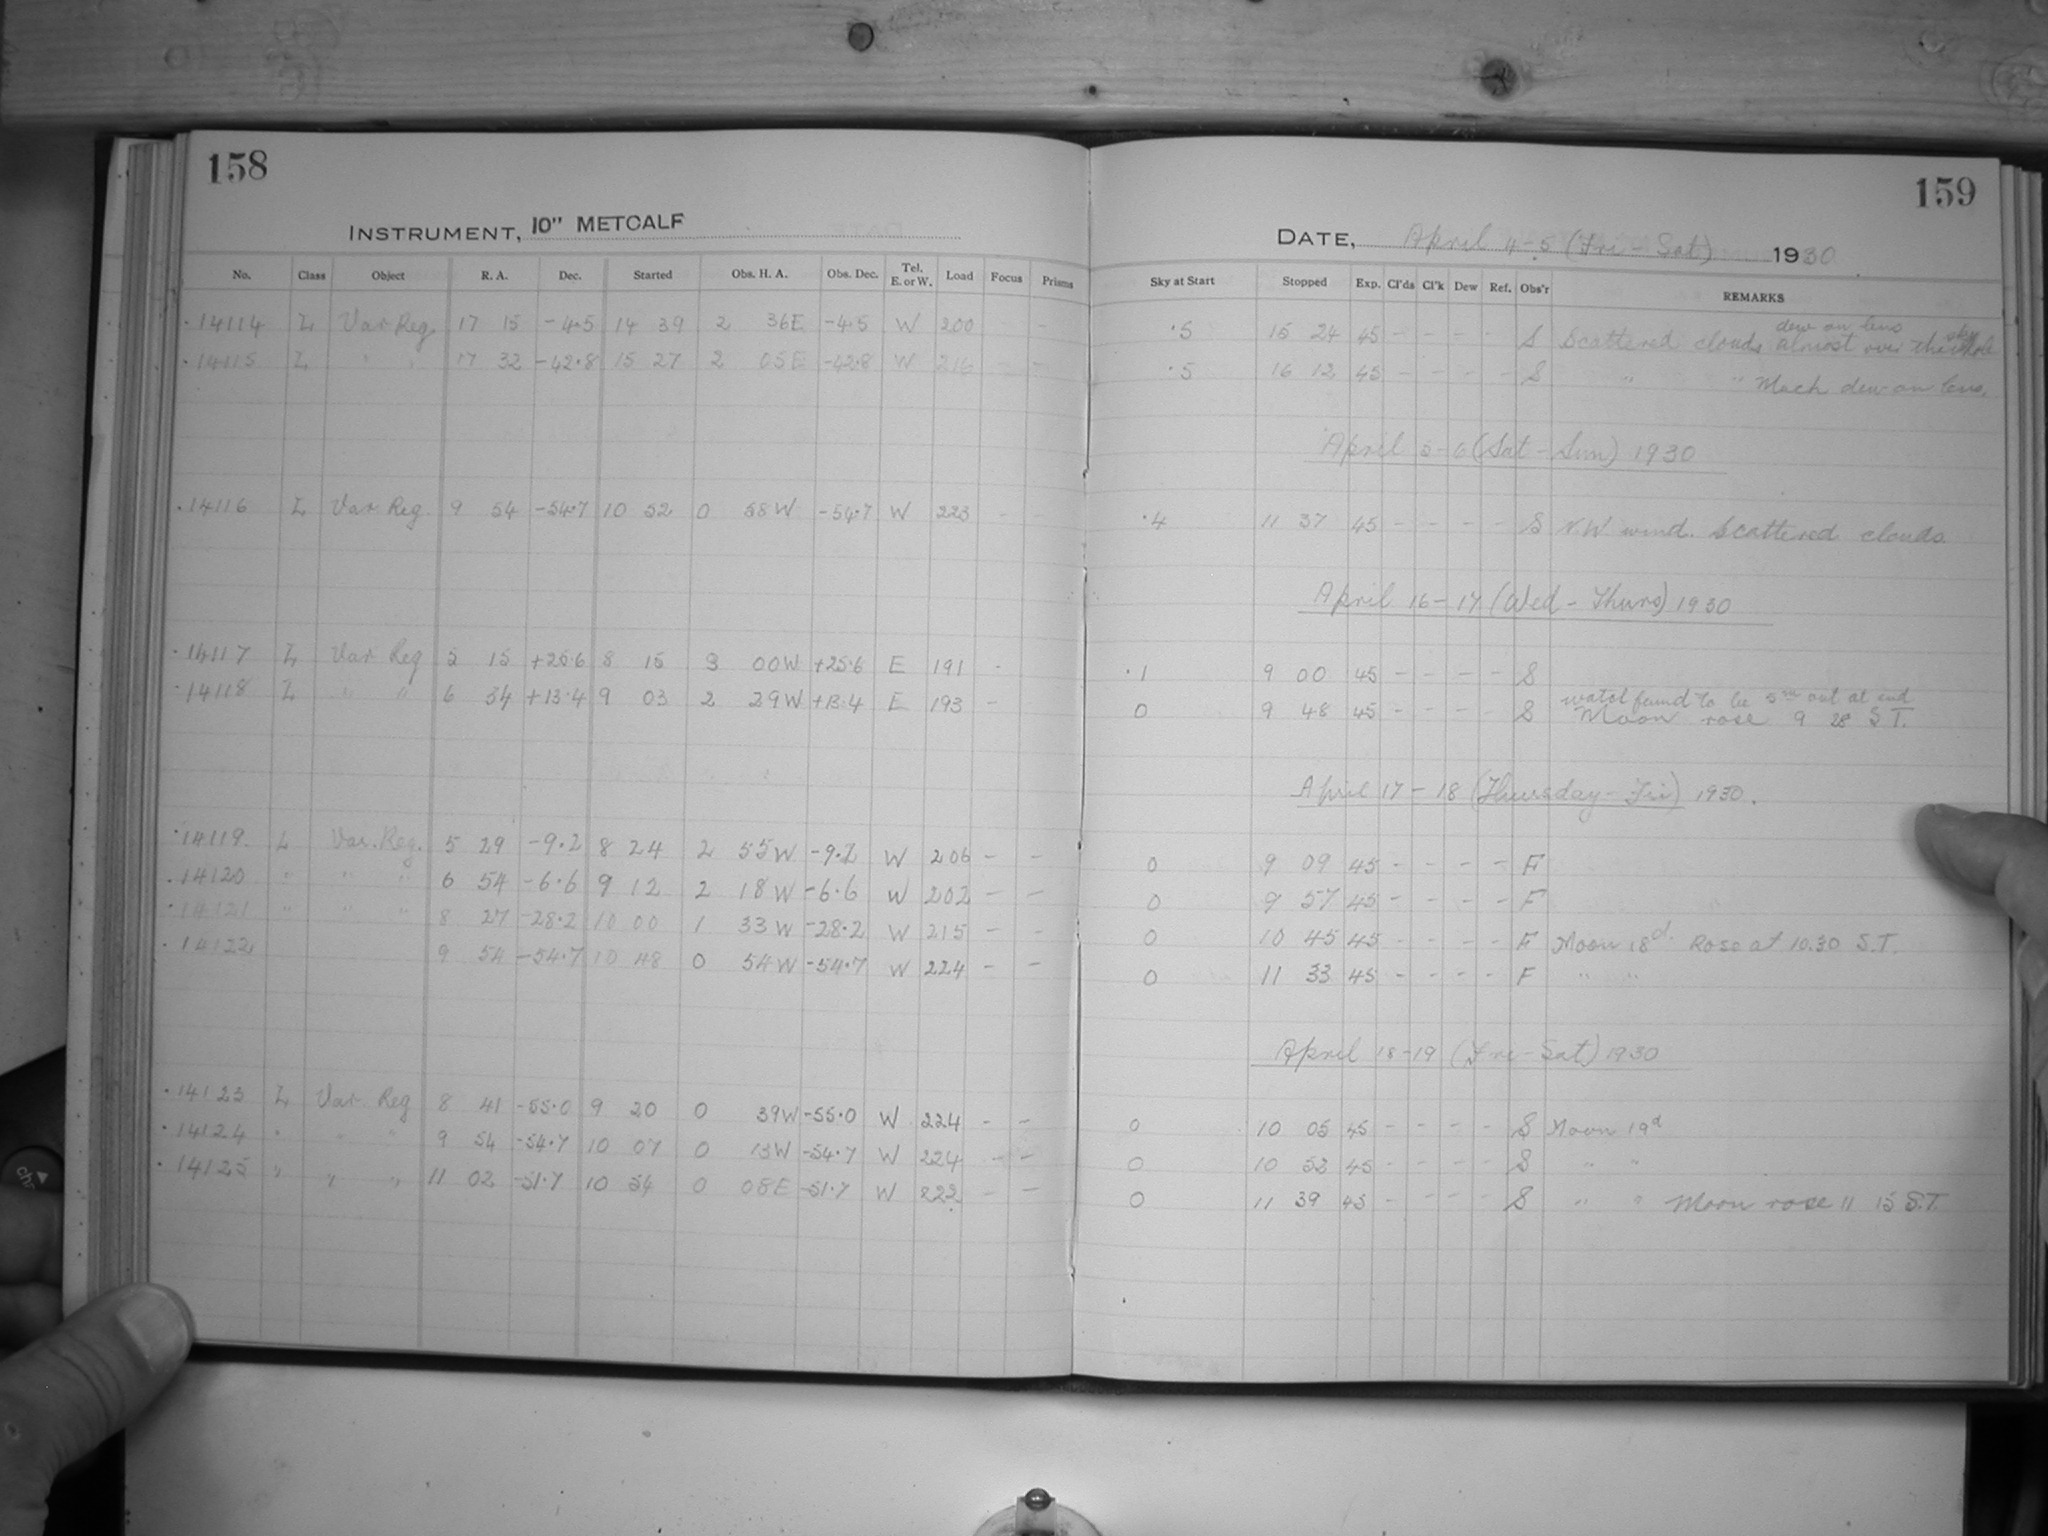 158
INSTRUMENT, 10" METCALF
No. Class Object R. A. Dec. Started Obs. H. A. Obs. Dec. Tel. E. or W. Load Focus Prisms
14114 L Var Reg 17 15 -4.5 14 39 2 36E -4.5 W 200 - -
14115 L " " 17 32 -42.8 15 27 2 05E -42.8 W 216 - -
14116 L Var Reg. 9 54 -54.7 10 52 0 58W -54.7 W 223 - -
14117 L Var Reg 5 15 +25.6 8 15 3 00W +25.6 E 191 -
14118 L " " 6 34 +13.4 9 03 2 29W +13.4 E 193 -
14119. L Var. Reg. 5 29 -9.2 8 24 2 55W -9.2 W 206 - -
14120 " " " 6 54 -6.6 9 12 2 18W -6.6 W 202 - -
14121 " " " 8 27 -28.2 10 00 1 33W -28.2 W 215 - -
14122 9 54 -54.7 10 48 0 54W -54.7 W 224 - -
14123 L Var. Reg 8 41 -55.0 9 20 0 39W -55.0 W 224 - -
14124 " " " 9 54 -54.7 10 07 0 13W -54.7 W 224 - -
14125 " " " 11 02 -51.7 10 54 0 08E -51.7 W 222 - -
159
DATE, April 4-5 (Fri - Sat) 1930
Sky at Start Stopped Exp. Cl'ds Cl'k Dew Ref. Obs'r REMARKS
dew on lens
.5 15 24 45 - - - - S Scattered clouds almost over the whole sky
.5 16 12 45 - - - - S " " Much dew on lens.
April 5-6 (Sat - Sun) 1930
.4 11 37 45 - - - - S N.W wind. Scattered clouds.
April 16-17 (Wed - Thurs) 1930
.1 9 00 45 - - - - S
watch found to be 5m out at end
0 9 48 45 - - - - S Moon rose 9 28 S.T.
April 17-18 (Thursday - Fri) 1930.
0 9 09 45 - - - - F
0 9 57 45 - - - - F
0 10 45 45 - - - - F Moon 18d. Rose at 10.30 S.T.
0 11 33 45 - - - - F " "
April 18-19 (Fri - Sat) 1930
0 10 05 45 - - - - S Moon 19d
0 10 52 45 - - - - S " "
0 11 39 45 - - - - S " " Moon rose 11 15 S.T.